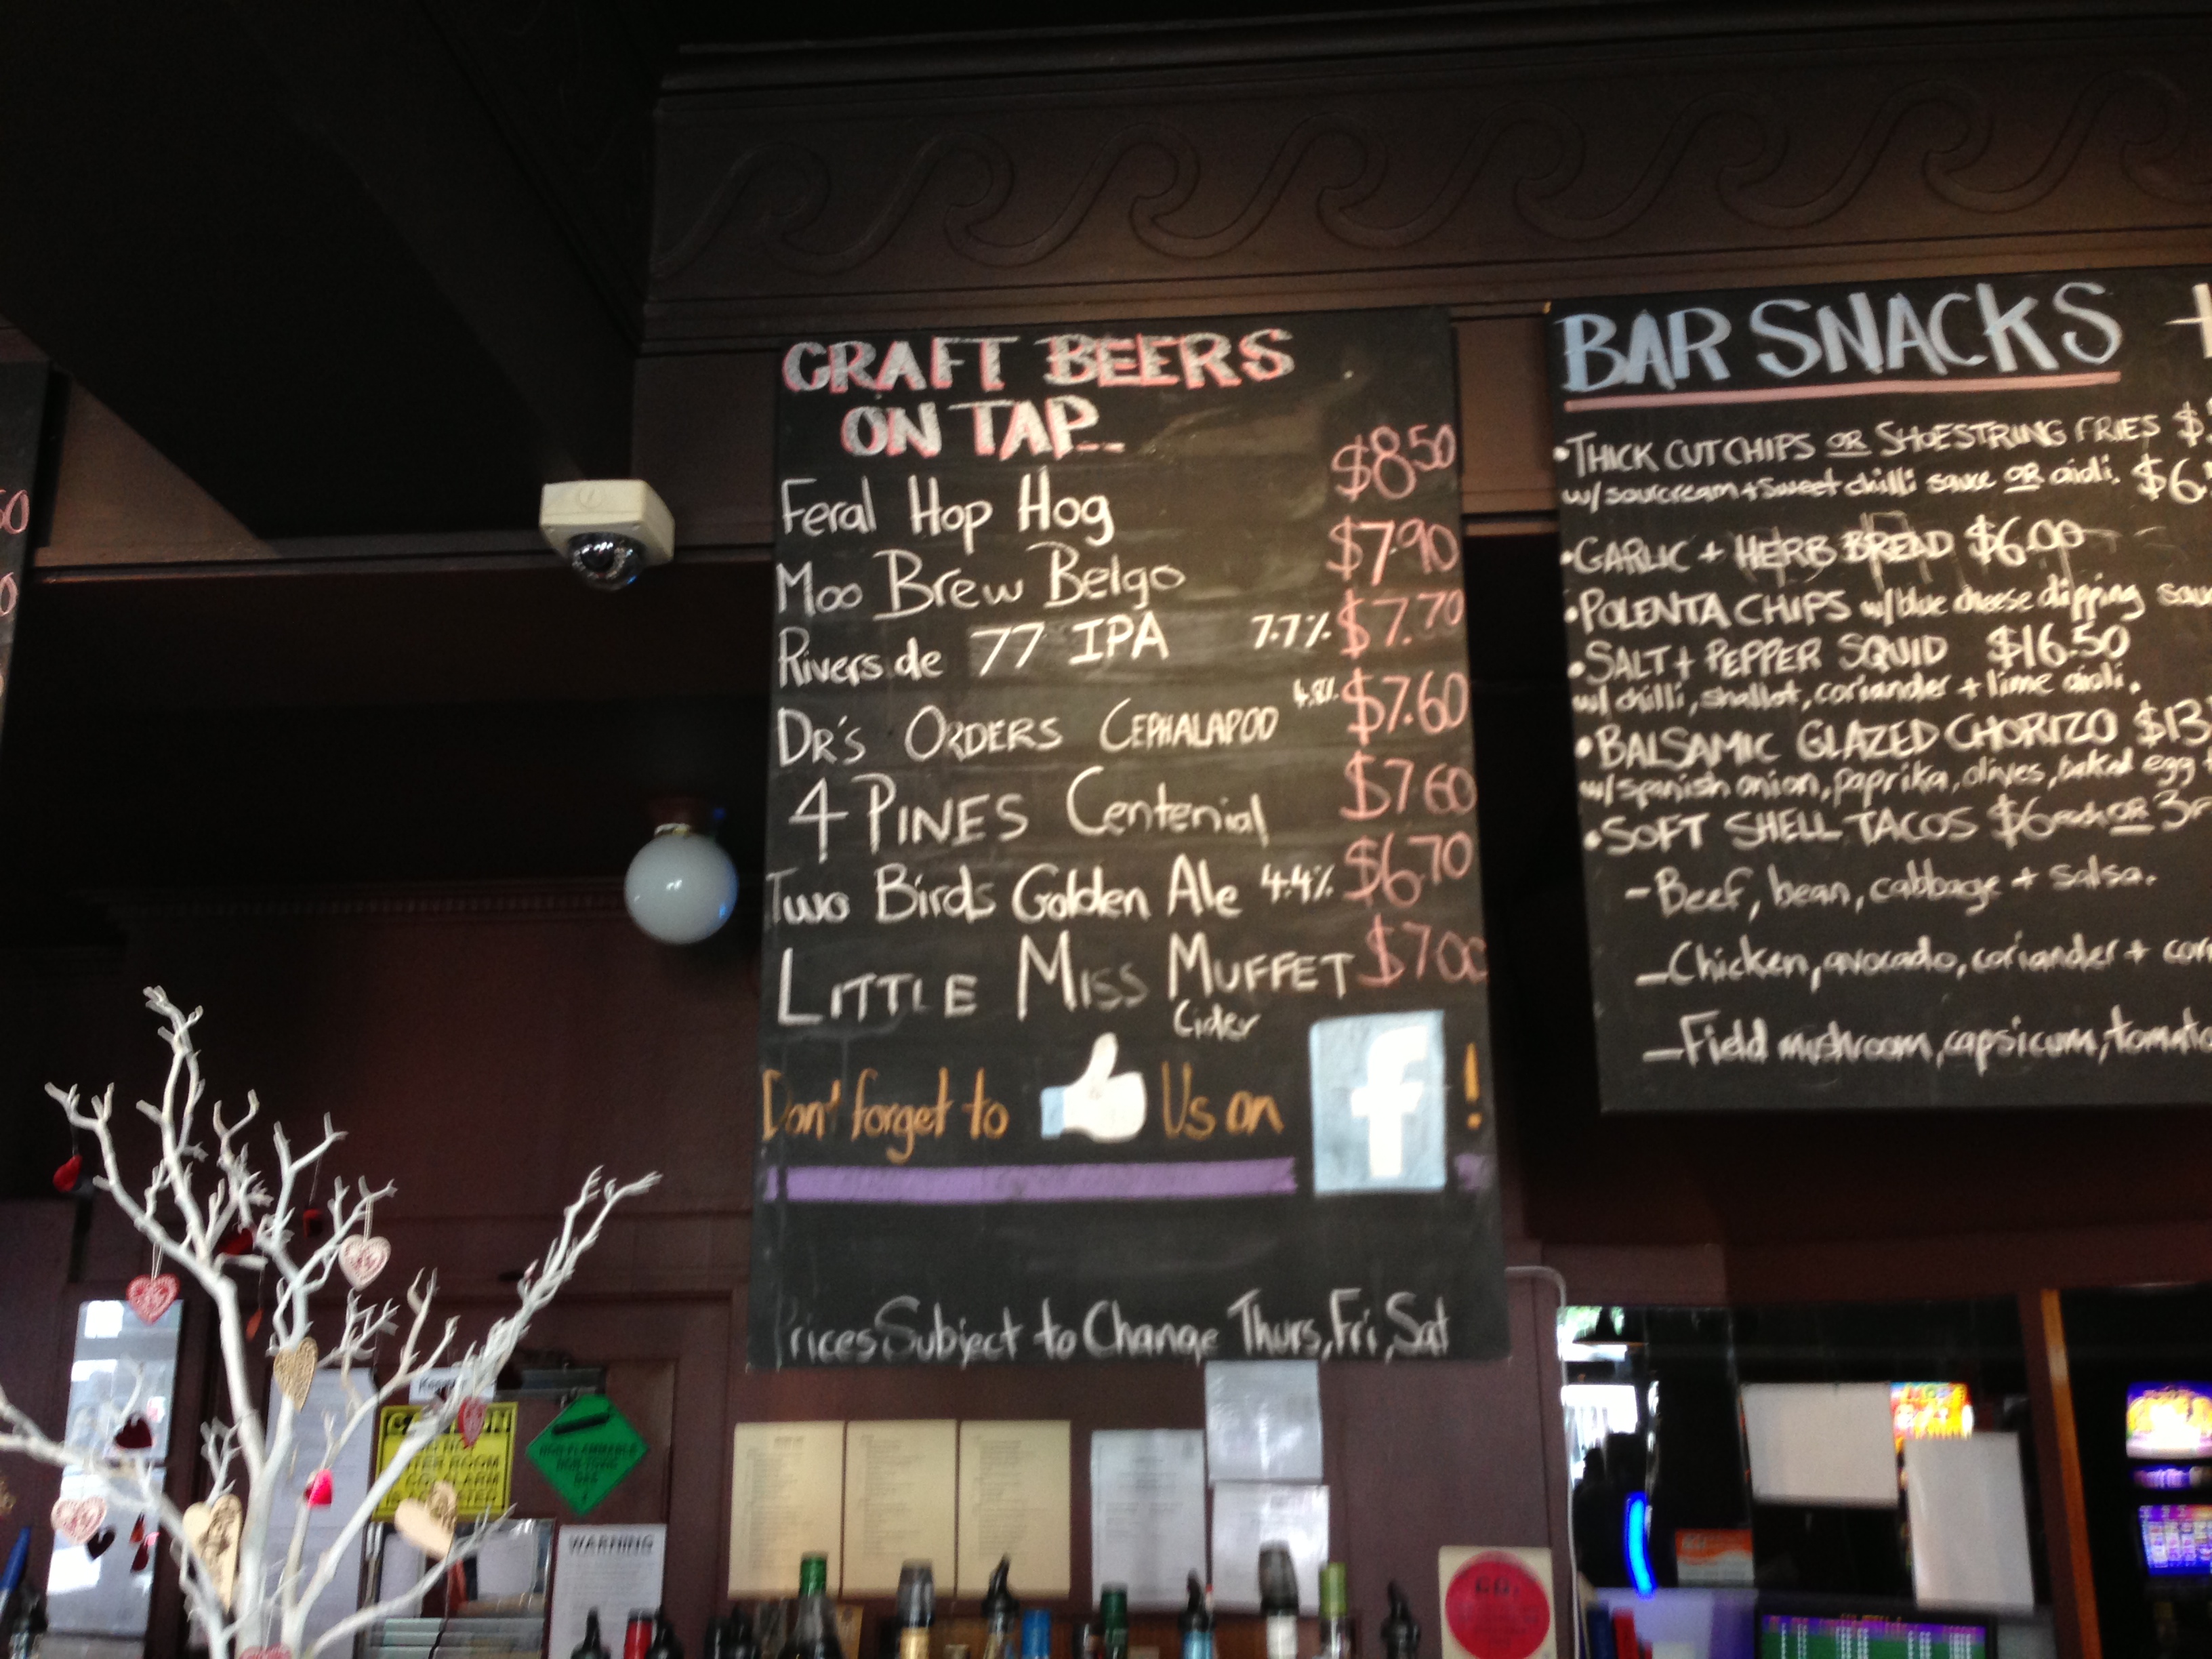 CRAFT BEERS
ON TAP...
Feral Hop Hog $8.50
Moo Brew Belgo $7.90
Riverside 77 IPA 7.7% $7.70
DR'S ORDERS CEPHALAPOD 4.8% $7.60
4 PINES Centenial $7.60
Two Birds Golden Ale 4.4% $6.70
LITTLE MISS MUFFET $7.00
Cider
Don't forget to Us on f !
Prices Subject to Change Thurs, Fri, Sat
BAR SNACKS +
• THICK CUT CHIPS OR SHOESTRING FRIES $
w/ sourcream + sweet chilli sauce OR aioli. $6.
• GARLIC + HERB BREAD $6.00
• POLENTA CHIPS w/ blue cheese dipping
• SALT + PEPPER SQUID $16.50
w/ chilli, shallot, coriander + lime aioli.
• BALSAMIC GLAZED CHORIZO $13
w/ spanish onion, paprika, olives, baked egg +
• SOFT SHELL TACOS $6 each OR 3
- Beef, bean, cabbage + salsa.
- Chicken, avocado, coriander +
- Field mushroom, capsicum, tomato
CAUTION
NON-FLAMMABLE
NON-TOXIC
GAS
WARNING